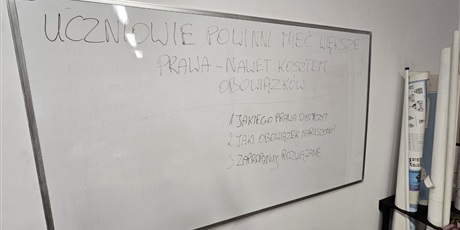 UCZNIOWIE POWINNI MIEĆ WIĘKSZE
PRAWA - NAWET KOSZTEM
OBOWIĄZKÓW
1 JAKIEGO PRAWA DOTYCZY
2 JAKI OBOWIĄZEK NARUSZONO?
3 ZAPROPONUJ ROZWIĄZANIE